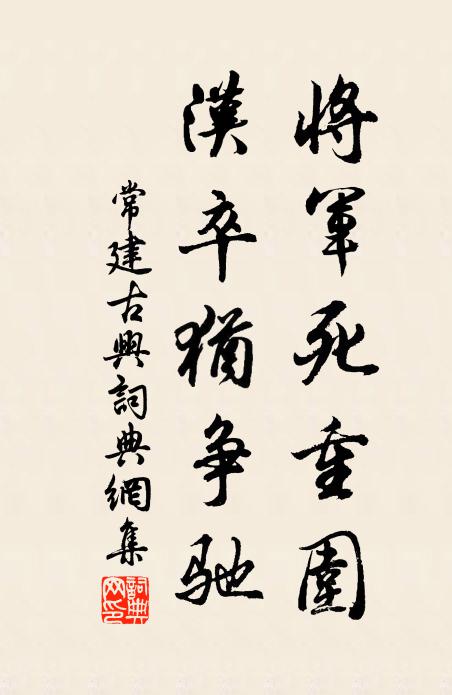 將軍死重圍
漢卒猶争驰
常建古興詞典網集
詞典網印